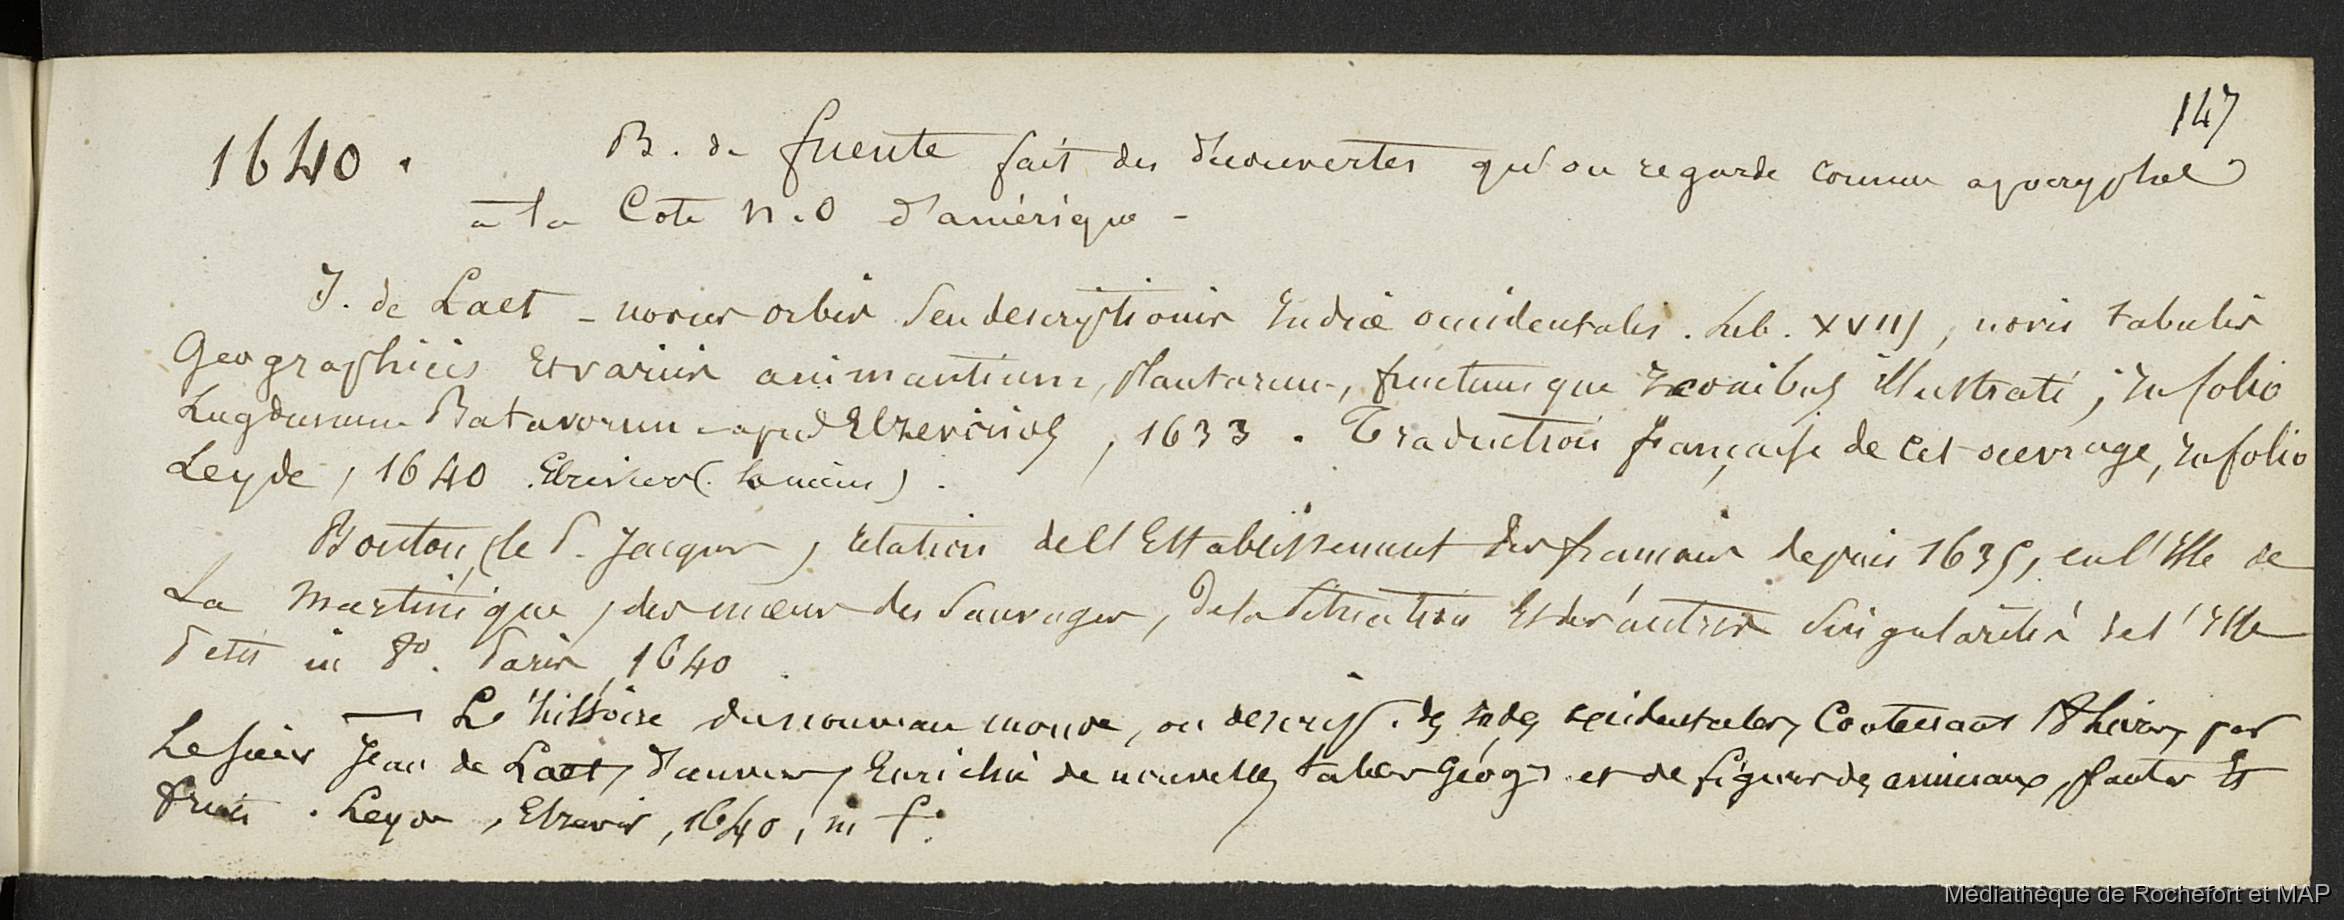 147
1640. B. de fuente fait des découvertes qu'on regarde comme apocryphes
a la Cote N.O d'amérique -
J. de Laet - novus orbis seu descriptionis Indiæ occidentalis. Lib. XVIII, novis tabulis
Geographicis et variis animantium, plantarum, fructuum que Iconibus illustrati, in folio
Lugdunum Batavorum apud Elzevirios, 1633. Traduction française de cet ouvrage, in folio
Leyde, 1640 Elzivier
Bouton, (le P. Jacques, relation de l'Establissement des francois depuis 1635, en l'Isle de
La Martinique, des mœurs des Sauvages, de la Situation et des autres Singularités de l'Isle
Petit in 8o. Paris, 1640
— L'histoire du nouveau monde, ou descrip. des Indes occidentales, Contenant 18 Livres, par
Le sieur Jean de Laet, d'anvers, Enrichi de nouvelles tables Géog. et de figures des animaux, plantes et
fruits. Leyde, Elzevir, 1640, in f.
Médiathèque de Rochefort et MAP